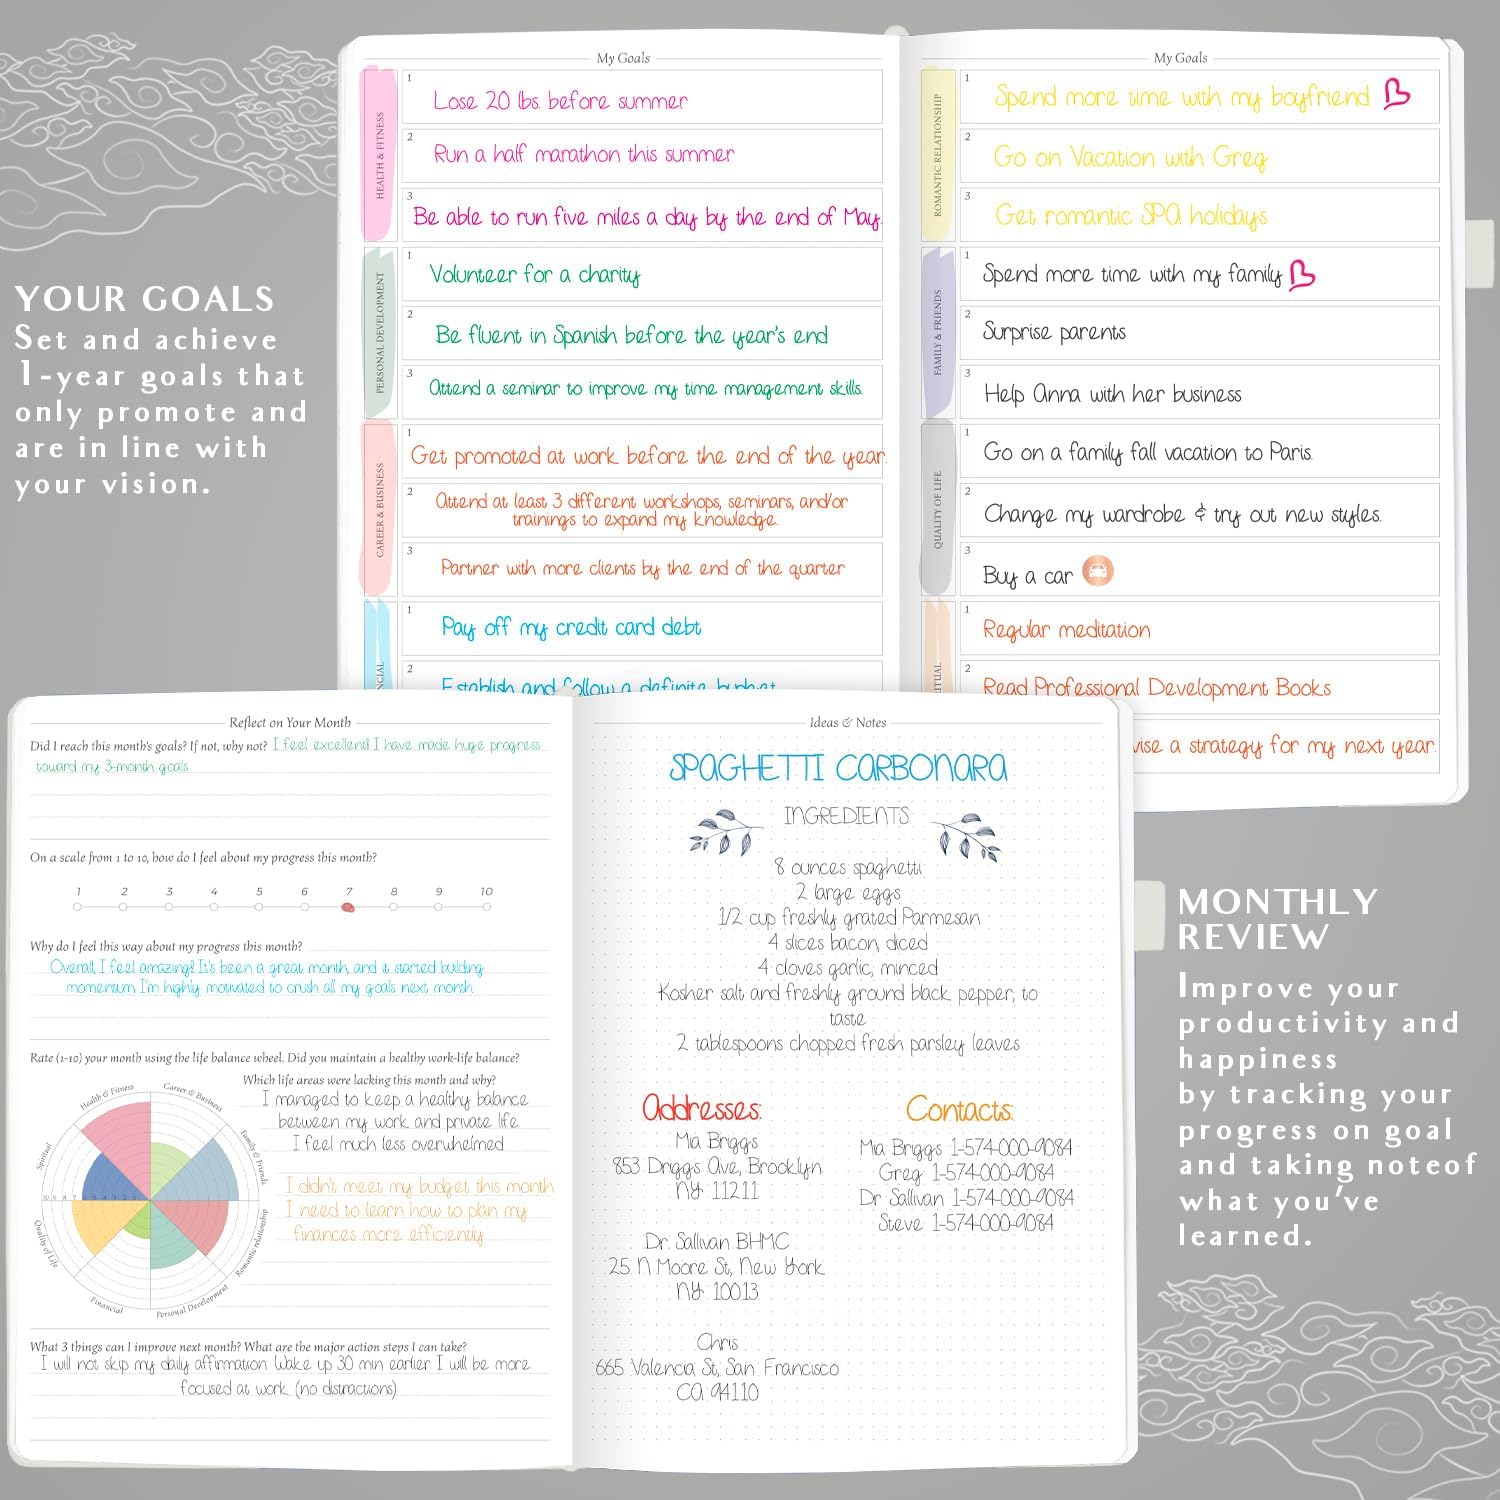 YOUR GOALS
Set and achieve
1-year goals that
only promote and
are in line with
your vision.
My Goals
HEALTH & FITNESS
1 Lose 20 lbs. before summer
2 Run a half marathon this summer
3 Be able to run five miles a day by the end of May.
PERSONAL DEVELOPMENT
1 Volunteer for a charity
2 Be fluent in Spanish before the year's end
3 Attend a seminar to improve my time management skills.
CAREER & BUSINESS
1 Get promoted at work before the end of the year.
2 Attend at least 3 different workshops, seminars, and/or
trainings to expand my knowledge.
3 Partner with more clients by the end of the quarter
NCIAL
1 Pay off my credit card debt
2 Establish and follow a definite budget
My Goals
ROMANTIC RELATIONSHIP
1 Spend more time with my boyfriend
2 Go on Vacation with Greg
3 Get romantic SPA holidays
FAMILY & FRIENDS
1 Spend more time with my family
2 Surprise parents
3 Help Anna with her business
QUALITY OF LIFE
1 Go on a family fall vacation to Paris.
2 Change my wardrobe & try out new styles.
3 Buy a car
RITUAL
1 Regular meditation
2 Read Professional Development Books
vise a strategy for my next year.
Reflect on Your Month
Did I reach this month's goals? If not, why not? I feel excellent! I have made huge progress
toward my 3-month goals
On a scale from 1 to 10, how do I feel about my progress this month?
1 2 3 4 5 6 7 8 9 10
Why do I feel this way about my progress this month?
Overall, I feel amazing! It's been a great month, and it started building
momentum. I'm highly motivated to crush all my goals next month.
Rate (1-10) your month using the life balance wheel. Did you maintain a healthy work-life balance?
Health & Fitness
Career & Business
Family & Friends
Romantic relationship
Personal Development
Financial
Quality of Life
Spiritual
10 9 8 7 6 5 4 3 2 1
Which life areas were lacking this month and why?
I managed to keep a healthy balance
between my work and private life
I feel much less overwhelmed
I didn't meet my budget this month
I need to learn how to plan my
finances more efficiently.
What 3 things can I improve next month? What are the major action steps I can take?
I will not skip my daily affirmation. Wake up 30 min earlier. I will be more
focused at work (no distractions)
Ideas & Notes
SPAGHETTI CARBONARA
INGREDIENTS
8 ounces spaghetti
2 large eggs
1/2 cup freshly grated Parmesan
4 slices bacon, diced
4 cloves garlic, minced
Kosher salt and freshly ground black pepper, to
taste
2 tablespoons chopped fresh parsley leaves
Addresses:
Mia Briggs
853 Driggs Ave, Brooklyn
NY 11211
Dr. Sallivan BHMC
25 N Moore St, New York
NY 10013
Chris
665 Valencia St, San Francisco
CA 94110
Contacts:
Mia Briggs 1-574-000-9084
Greg 1-574-000-9084
Dr Sallivan 1-574-000-9084
Steve 1-574-000-9084
MONTHLY
REVIEW
Improve your
productivity and
happiness
by tracking your
progress on goal
and taking noteof
what you've
learned.